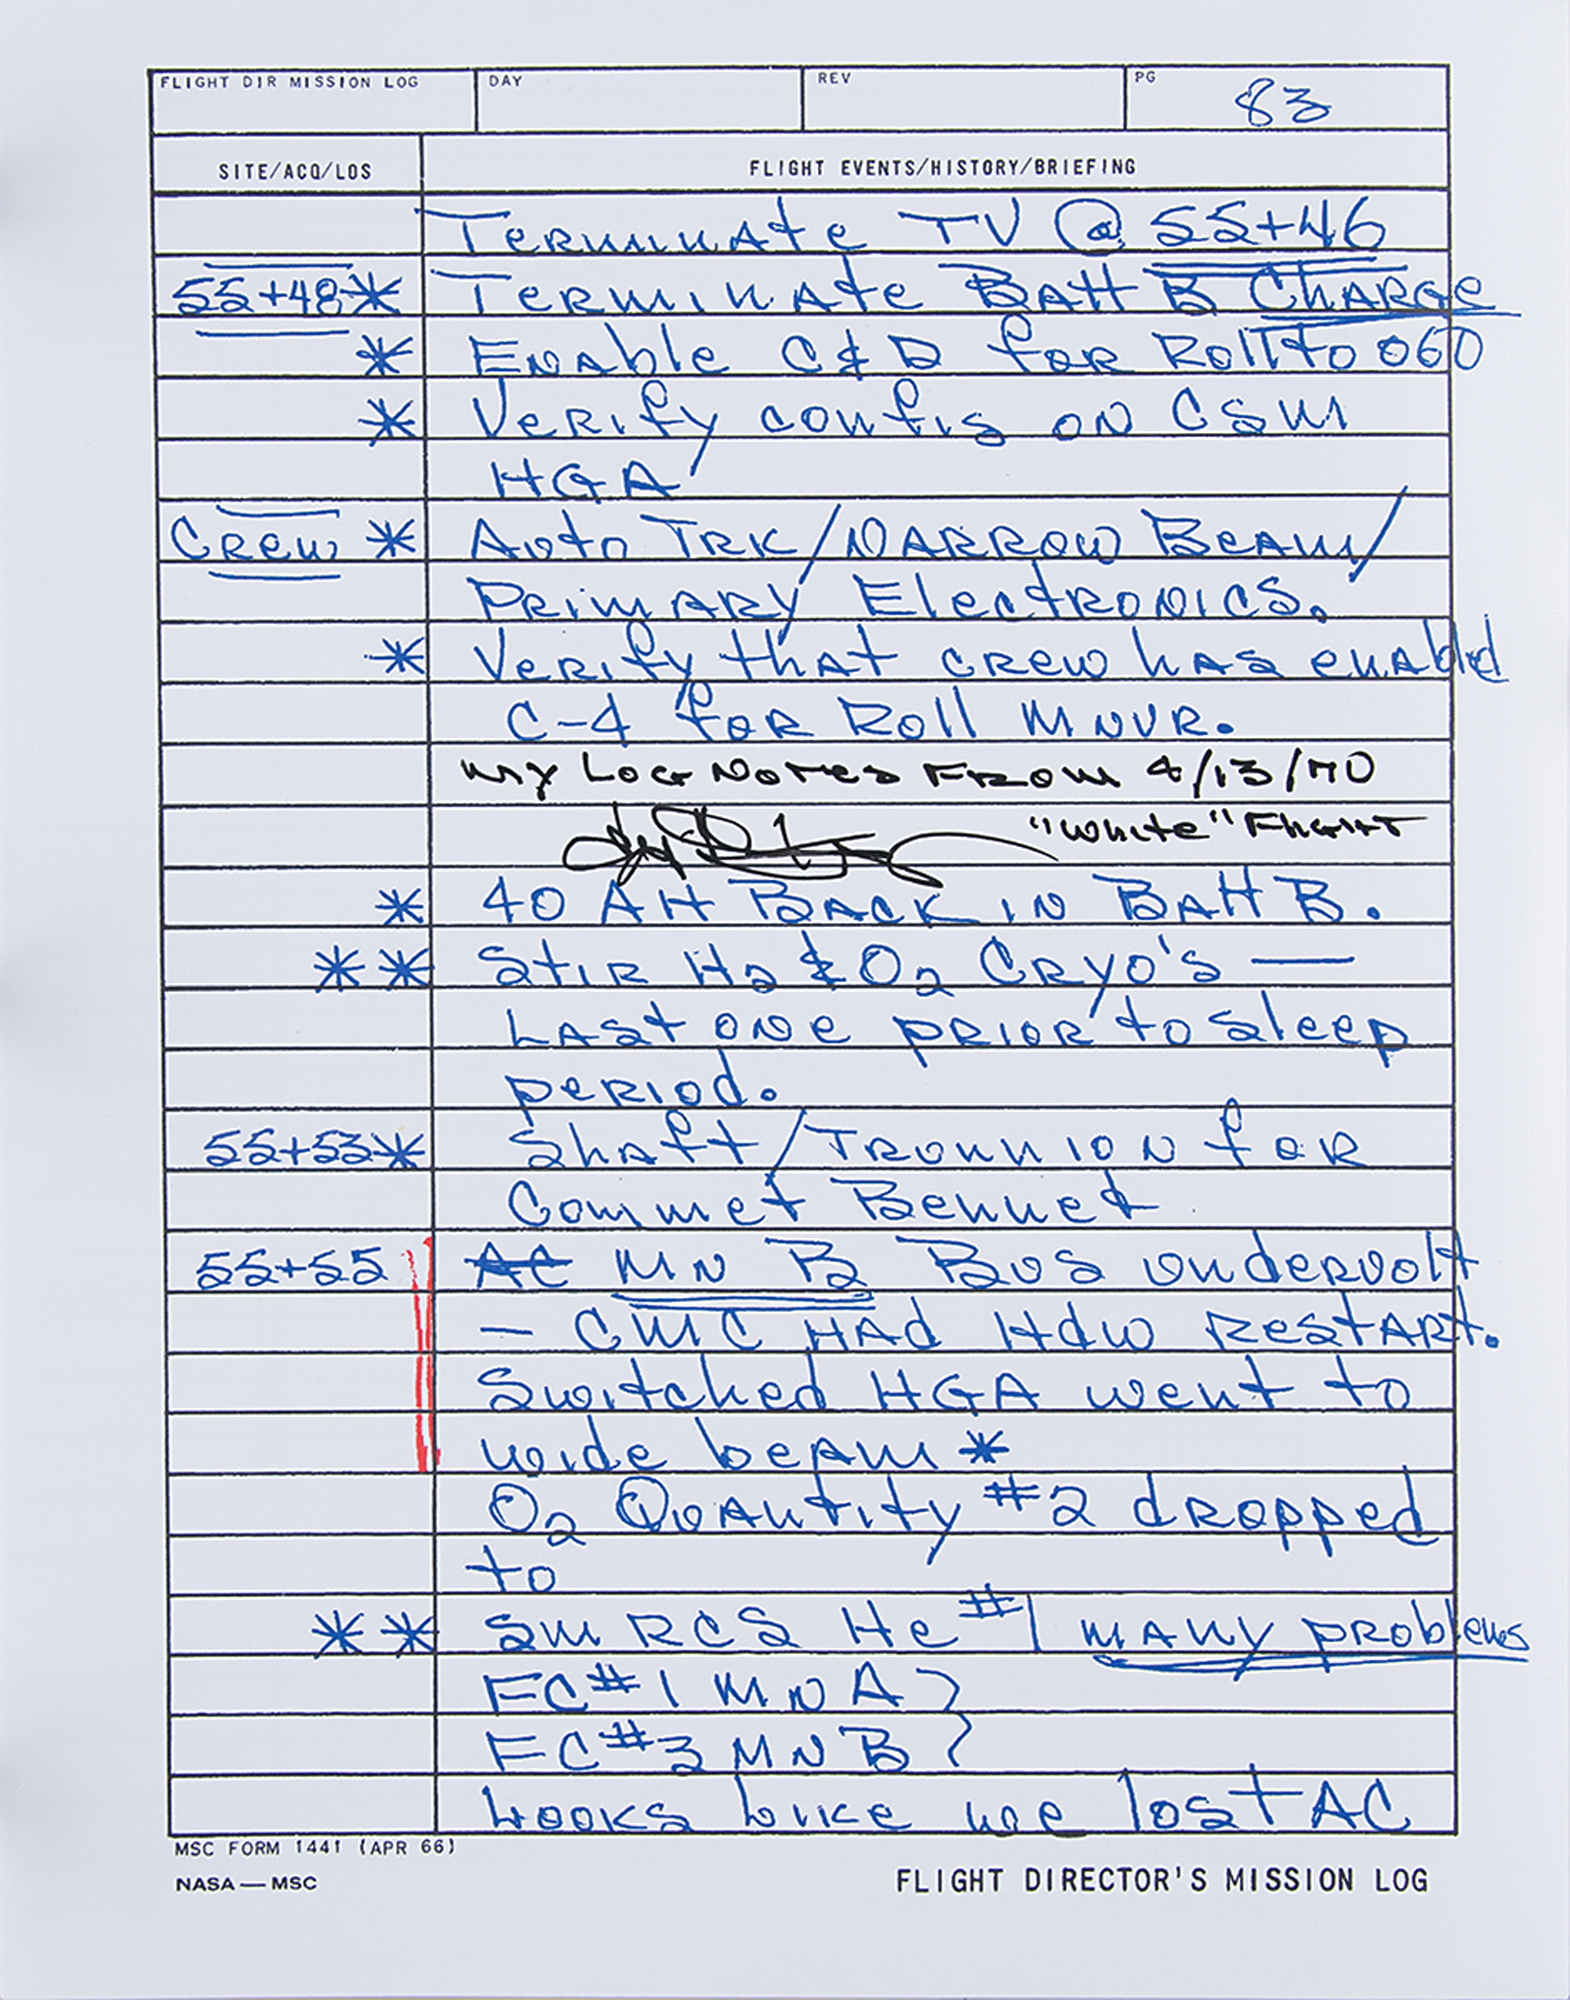 FLIGHT DIR MISSION LOG DAY REV PG 83
SITE/ACQ/LOS FLIGHT EVENTS/HISTORY/BRIEFING
Terminate TV @ 55+46
55+48 * Terminate Batt B Charge
* Enable C & D for Roll to 060
* Verify config on CSM
HGA
Crew * Auto TRK/NARROW BEAM/
Primary Electronics.
* Verify that crew has enabld
C-4 for Roll MNVR.
My Log Notes From 4/13/70
"White" Flight
* 40 AH Back in Batt B.
** Stir H2 & O2 Cryo's —
Last one prior to sleep
period.
55+53 * Shaft/Trounnion for
Commet Bennet
55+55 AC MN B Bus undervolt
— CMC HAd Hdw Restart.
Switched HGA went to
wide beam *
O2 Quantity #2 dropped
to
** SM RCS He #1 many problems
FC #1 MN A }
FC #3 MN B }
Looks Like we lost AC
MSC FORM 1441 (APR 66)
NASA — MSC
FLIGHT DIRECTOR'S MISSION LOG